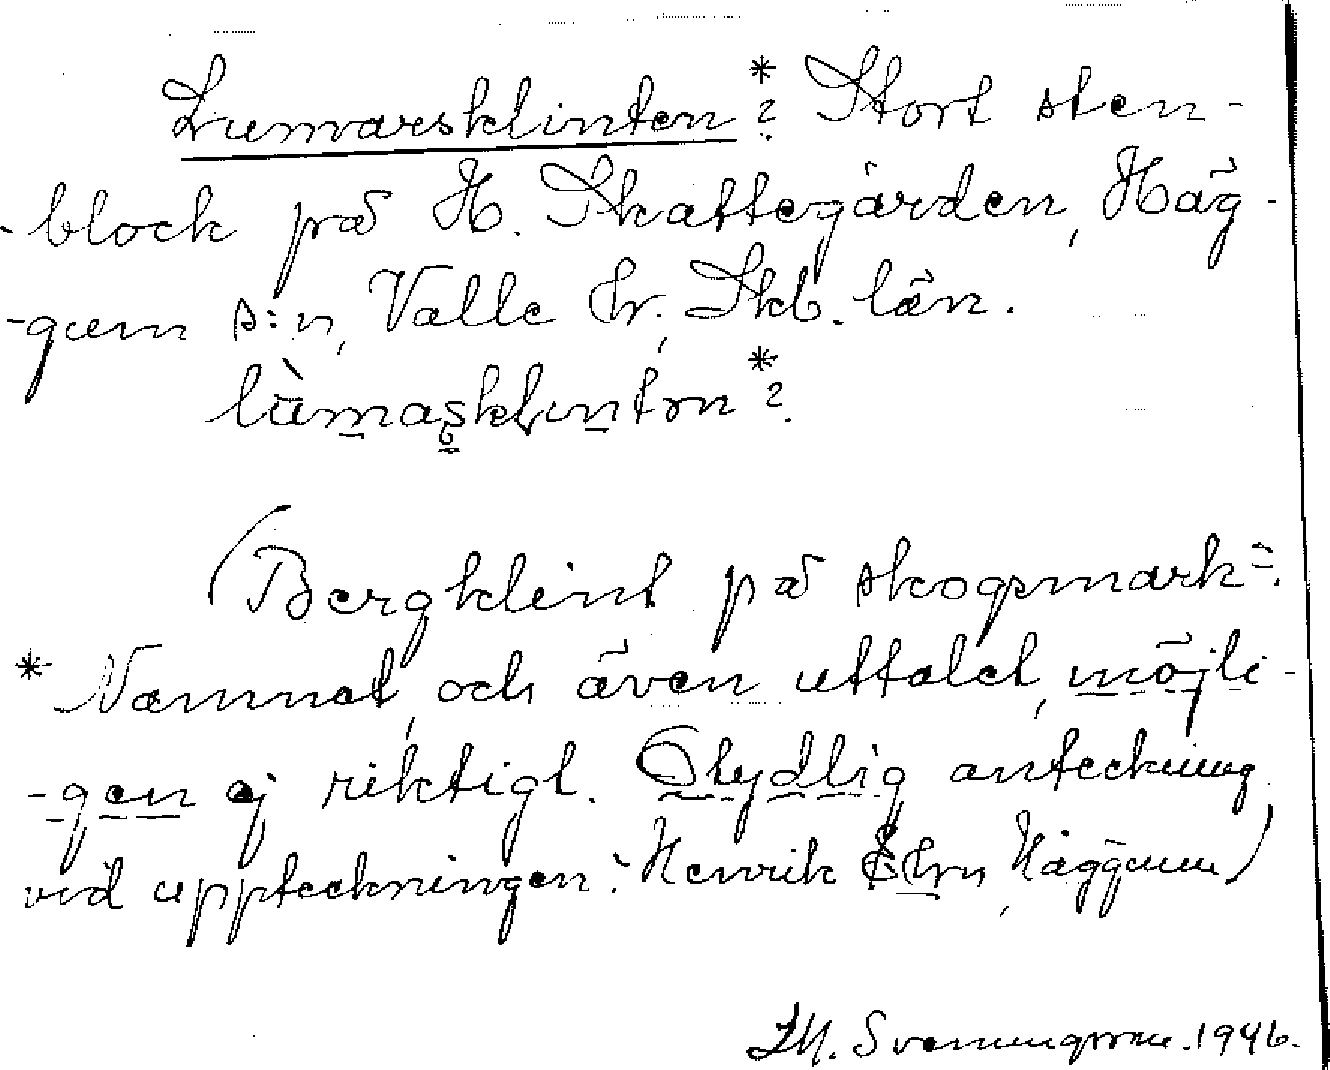 Lumarsklinten*? Stort sten-
-block på H. Skattegården, Häg-
-gum s:n, Valle hr., Skb. län.
lùmasklintɔn*?.
(Bergklint på skogsmark".
* Namnet, och även uttalet, möjli-
-gen ej riktigt. Otydlig anteckning
vid uppteckningen: Henrik Ehn, Häggum)
Svenungsson. 1946.